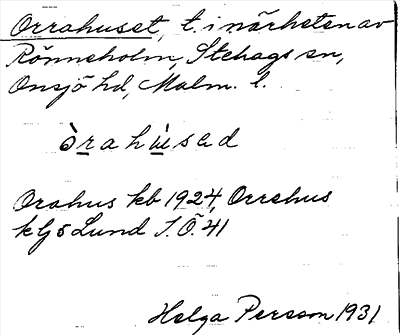 Orrahuset, t. i närheten av
Rönneholm, Stehags sn,
Onsjö hd, Malm. l.
òrahu̇sad
Orahus kb 1924, Orrehus
klj 5 Lund S.Ö. 41
Helga Persson 1931